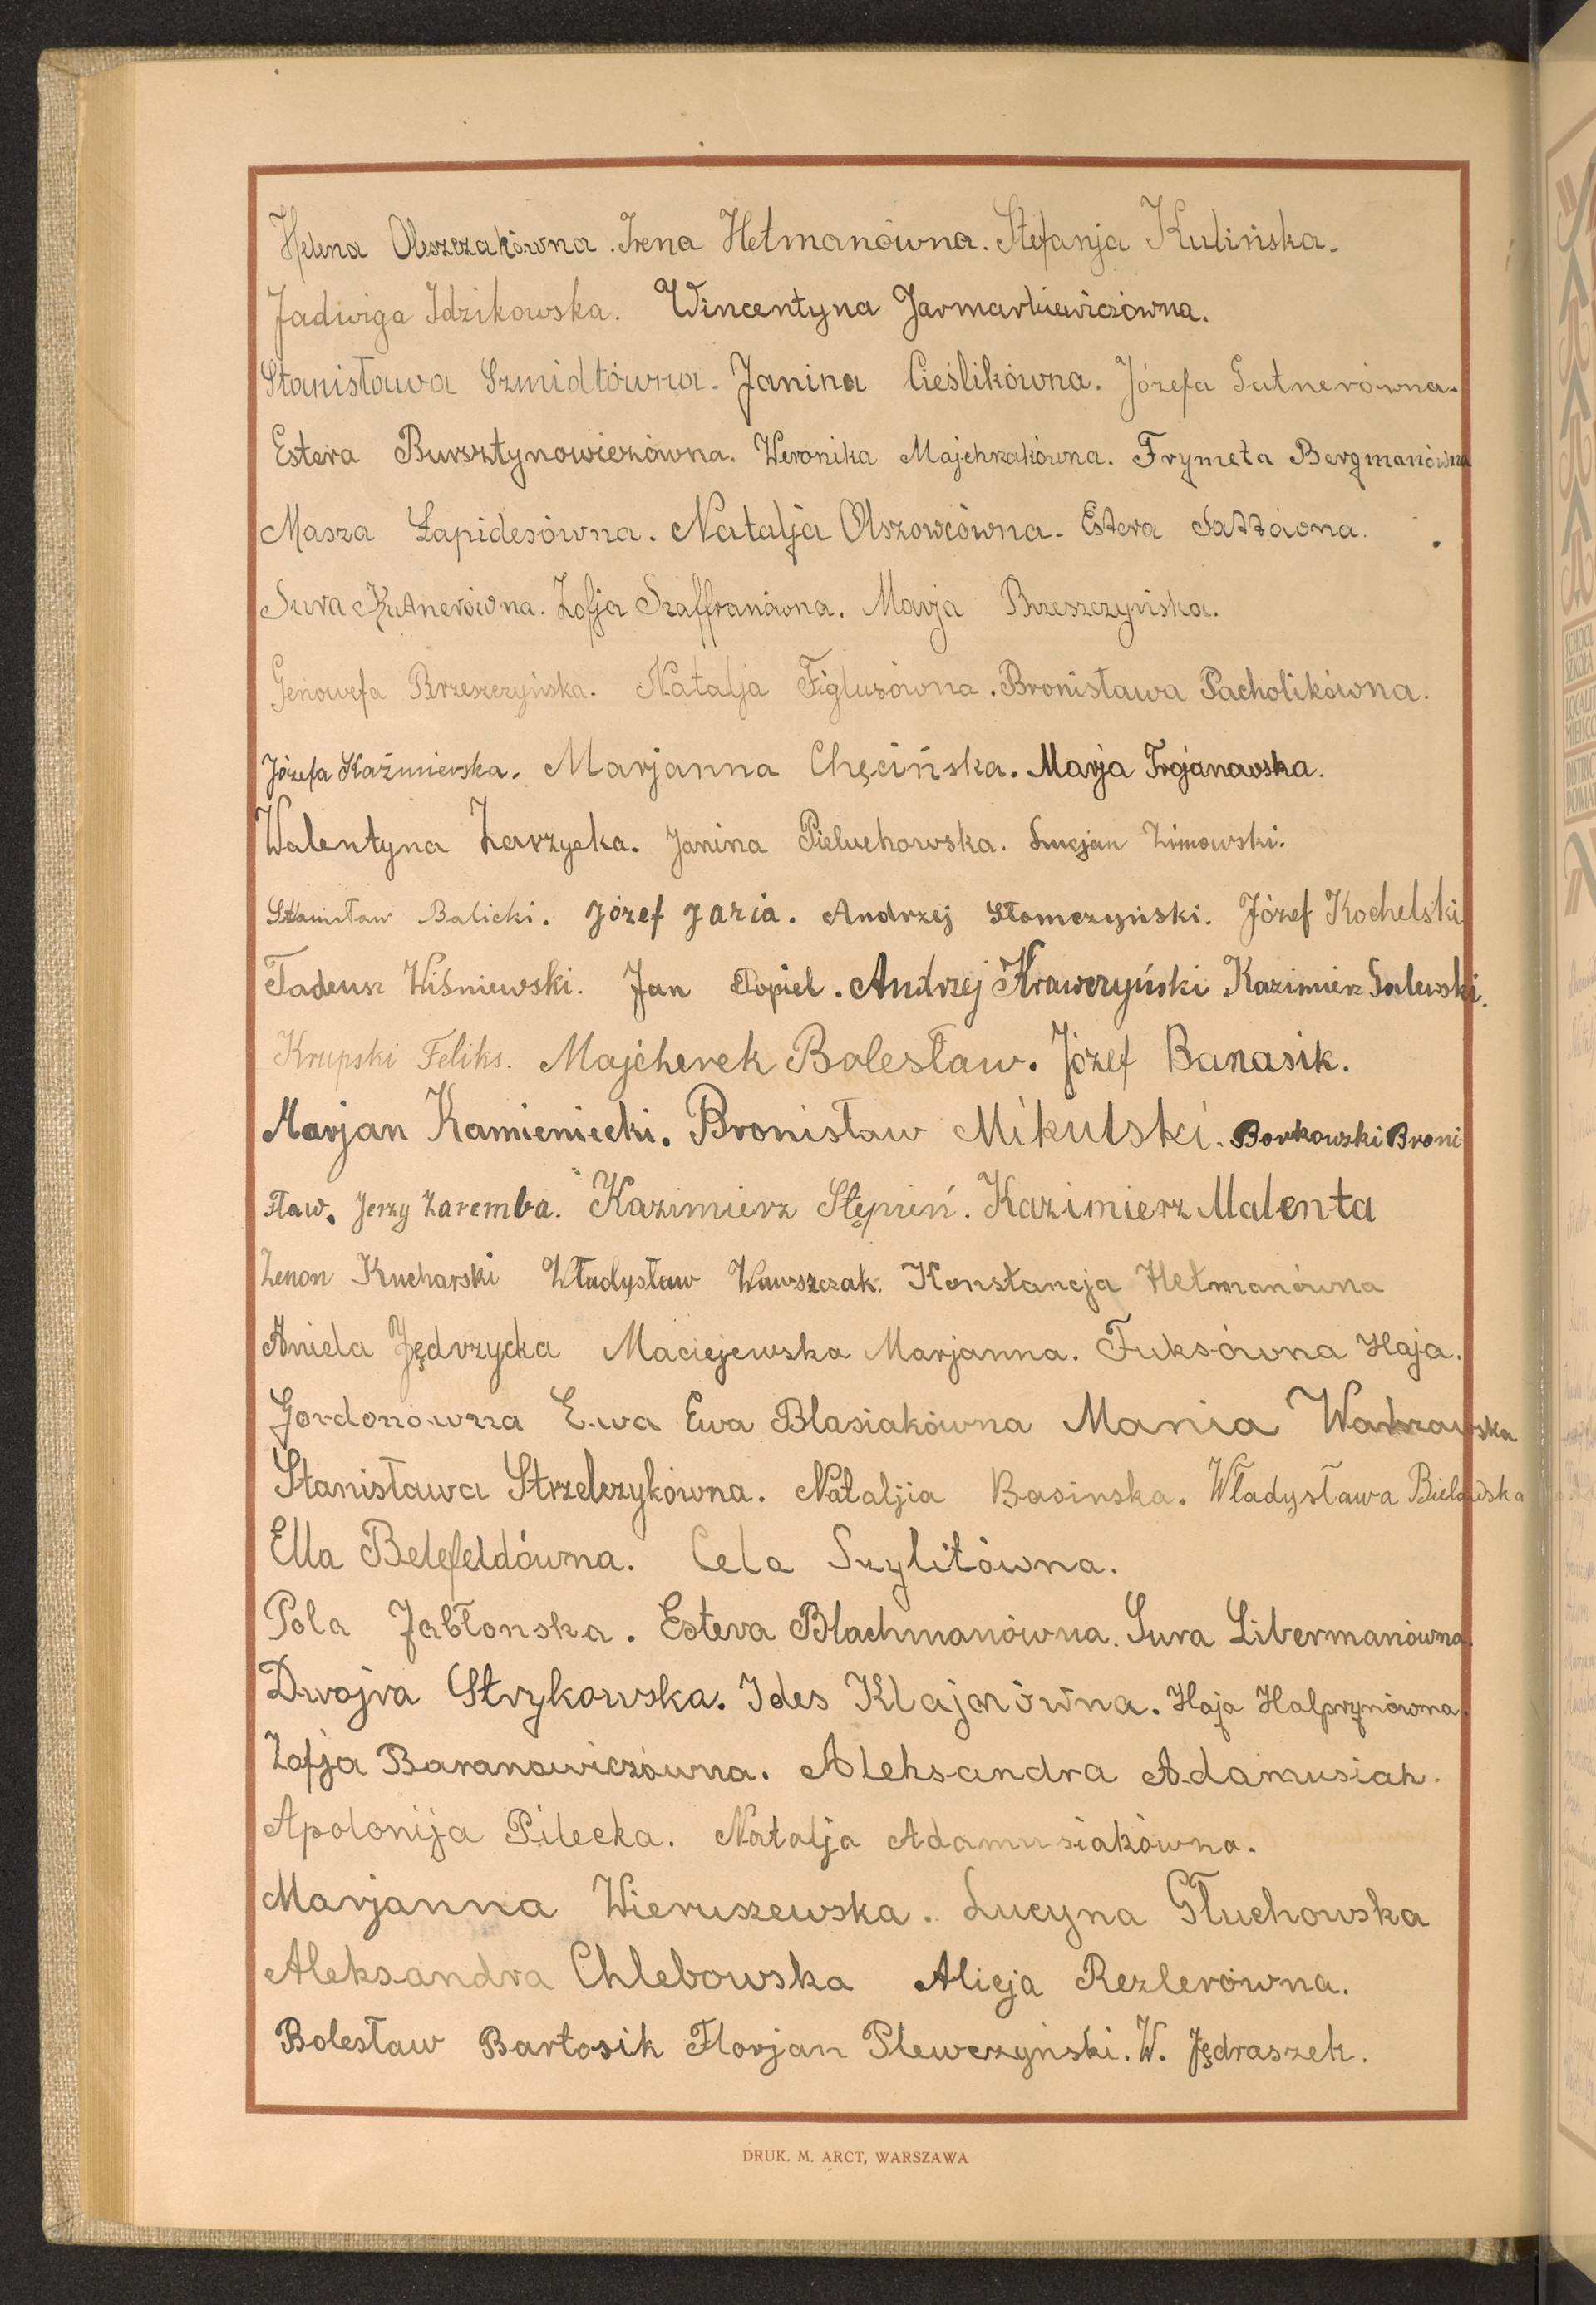 Helena Olszczakówna. Irena Hetmanówna. Stefanja Kulińska.
Jadwiga Idzikowska. Wincentyna Jarmarkiewiczówna.
Stanisława Szmidtówna. Janina Cieślikówna. Józefa Gutnerówna.
Estera Bursztynowiczówna. Weronika Majchrzakówna. Frymeta Bergmanówna
Masza Łapidesówna. Natalja Olszowcówna. Estera
Sura Kutnerówna. Zofja Szaffranówna. Marja Brzeszczyńska.
Genowefa Brzeszczyńska. Natalja Figlusówna. Bronisława Pacholikówna.
Józefa Kaźmierska. Marjanna Chęcińska. Marja Trojanowska.
Walentyna Zarzycka. Janina Pieluchowska. Lucjan Zimowski.
Stanisław Balicki. Józef Jaria. Andrzej Słomczyński. Józef Kochelski
Tadeusz Wiśniewski. Jan Popiel. Andrzej Krawczyński Kazimierz Galewski.
Krupski Feliks. Majcherek Bolesław. Józef Banasik.
Marjan Kamieniecki. Bronisław Mikulski. Borkowski Broni
sław. Jerzy Zaremba. Kazimierz Stępień. Kazimierz Malenta
Zenon Kucharski Władysław Wawszczak. Konstancja Hetmanówna
Aniela Jędrzycka Maciejewska Marjanna. Fuksówna Haja.
Gordonówna Ewa Ewa Blasiakówna Mania
Stanisława Strzelczykówna. Nataljia Basinska. Władysława Bielawska
Ella Belefeldówna. Cela Szylitówna.
Pola Jabłonska. Estera Blachmanówna. Sura Libermanówna.
Dwojra Strykowska. Ides Klajnówna. Haja Halprynówna.
Zofja Baranowiczówna. Aleksandra Adamusiak.
Apolonija Pilecka. Natalja Adamusiakówna.
Marjanna Wieruszewska. Lucyna Głuchowska
Aleksandra Chlebowska Alicja Rezlerówna.
Bolesław Bartosik Florjan Plewczyński. W. Jędraszek.
DRUK. M. ARCT, WARSZAWA